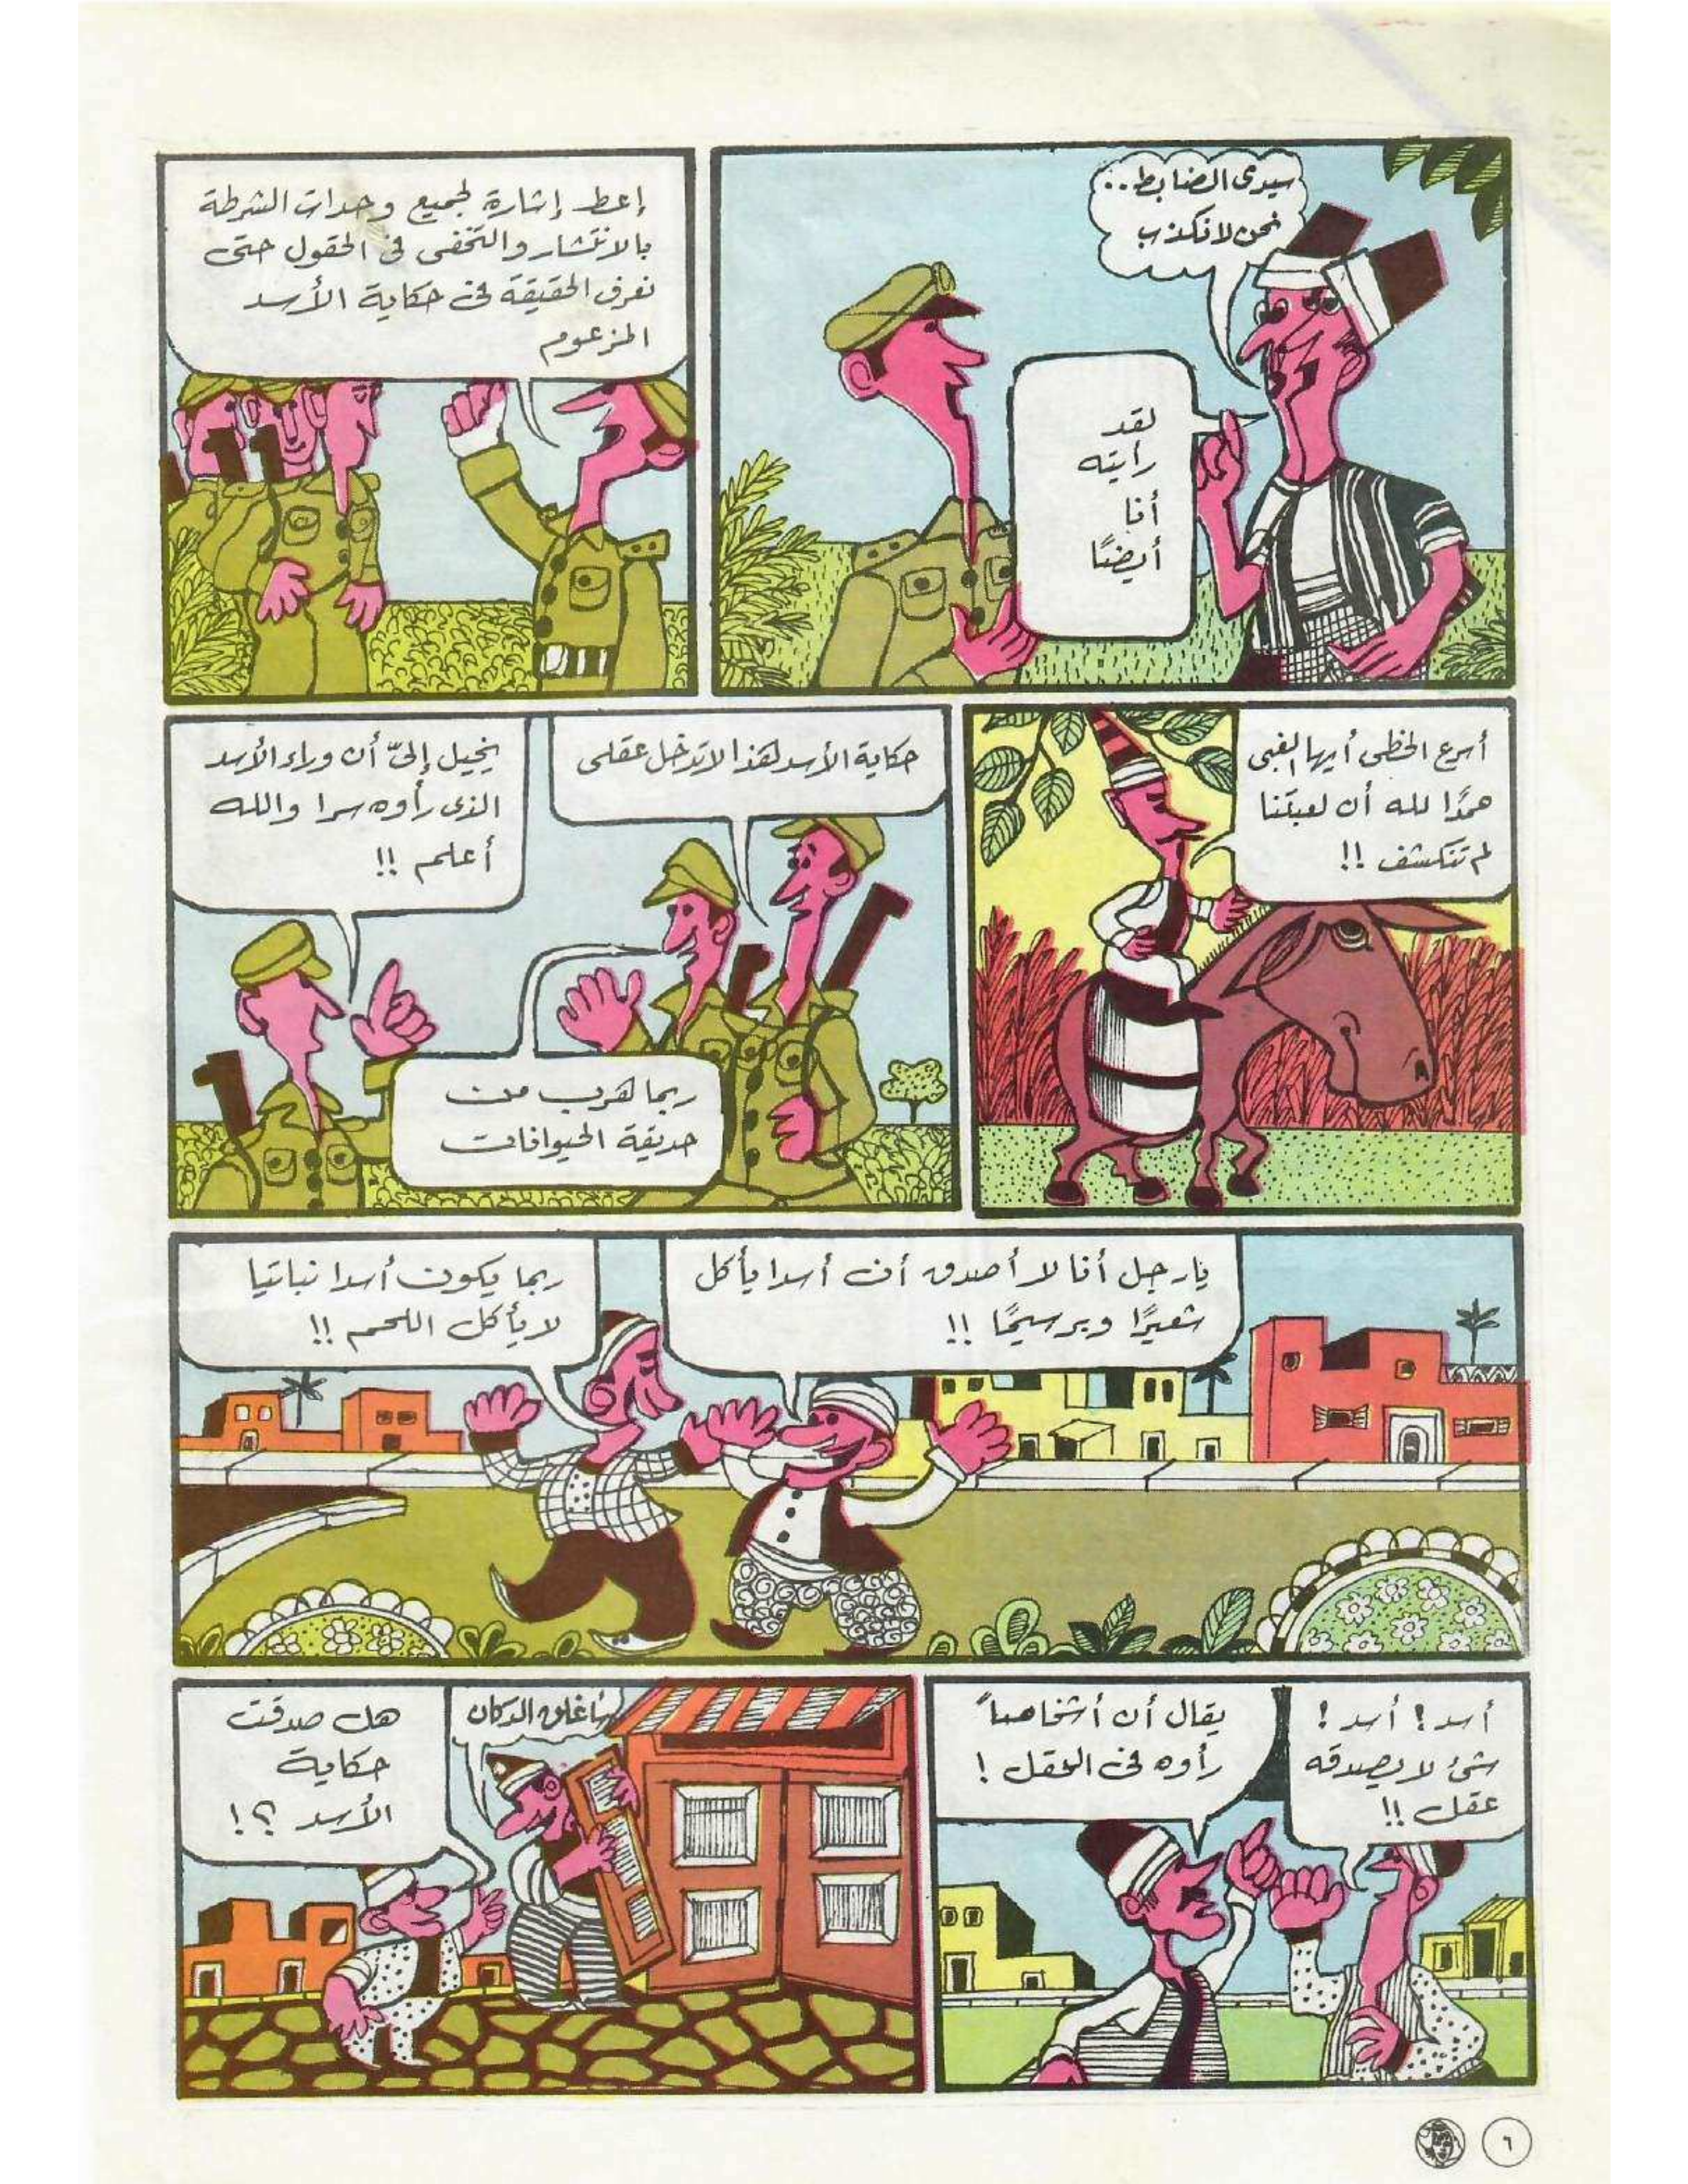 سيدى الضابط..
نحن لا نكذب
لقد
رأيته
أنا
أيضًا
إعط إشارة لجميع وحدات الشرطة
بالانتشار والتخفى فى الحقول حتى
نعرف الحقيقة فى حكاية الأسد
المزعوم
أسرع الخطى أيها الغبى
حمدًا لله أن لعبتنا
لم تنكشف !!
حكاية الأسد هذا لا تدخل عقلى
ربما هرب من
حديقة الحيوانات
يخيل إلىّ أن وراء الأسد
الذى رأوه سرا والله
أعلم !!
يا رجل أنا لا أصدق أن أسدا يأكل
شعيرًا وبرسيمًا !!
ربما يكون أسدا نباتيا
لا يأكل اللحم !!
أسد ! أسد !
شئ لا يصدقه
عقل !!
يقال أن أشخاصاً
رأوه فى الحقل !
سأغلق الدكان
هل صدقت
حكاية
الأسد ؟!
٦